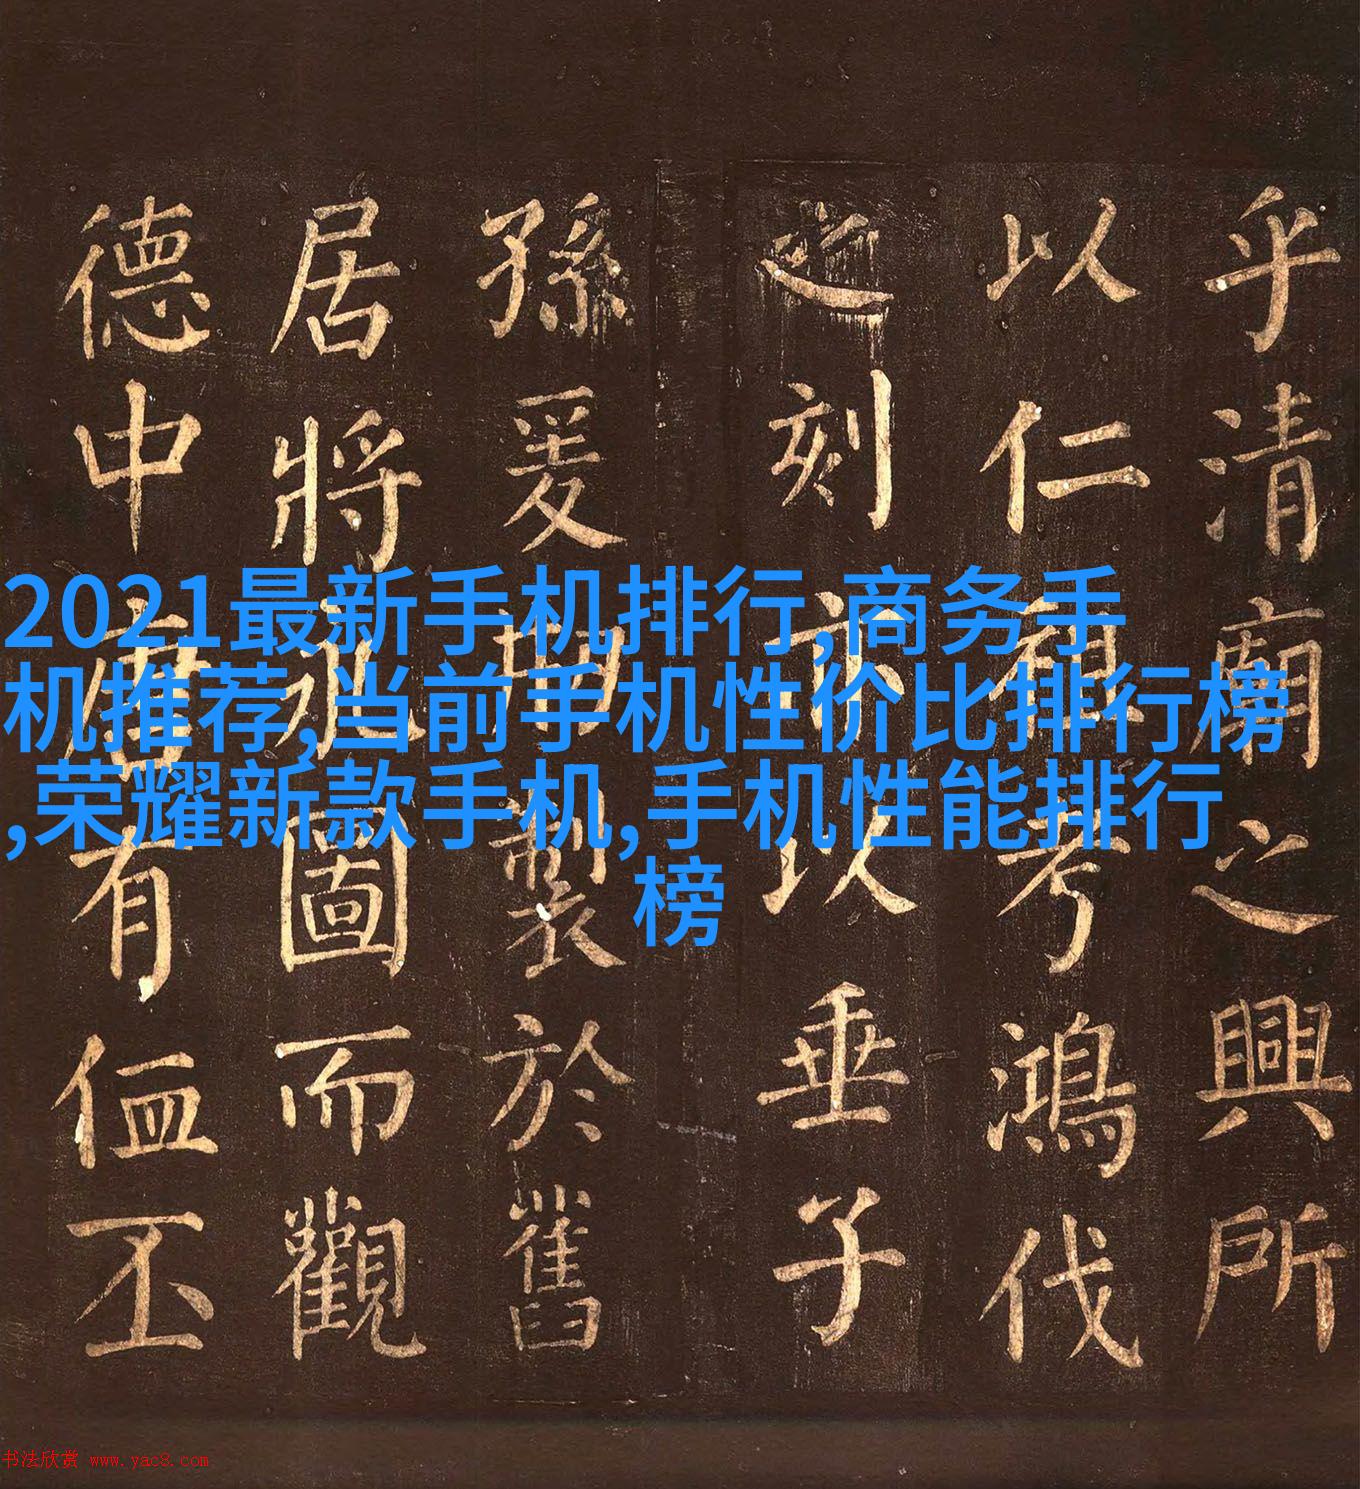 2021最新手机排行,商务手
机推荐,当前手机性价比排行榜
,荣耀新款手机,手机性能排行
榜
乎清廟之興所
以仁祖考鴻伐
之刻以垂子
孫爰製於舊
居將永圖而觀
德中唐有侐丕
书法欣赏 www.yac8.com